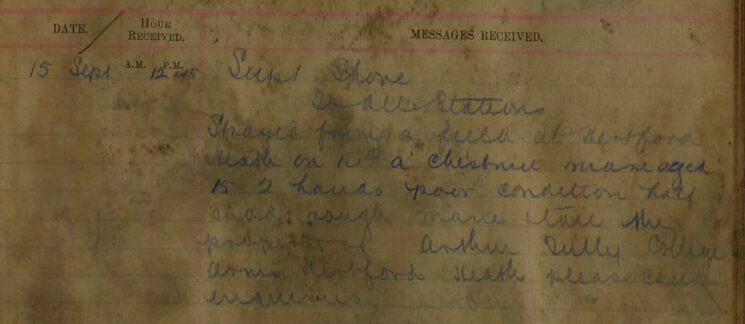 DATE. HOUR RECEIVED. MESSAGES RECEIVED.
15 Sept A.M. P.M. 12 45 Supt Shore
To all Stations
Strayed from a field at Hertford
Heath on 14th a chestnut mare aged
15 2 hands poor condition half
shod rough mane & tail the
property of Arthur Tilly College
Arms Hertford Heath please cause
enquiries